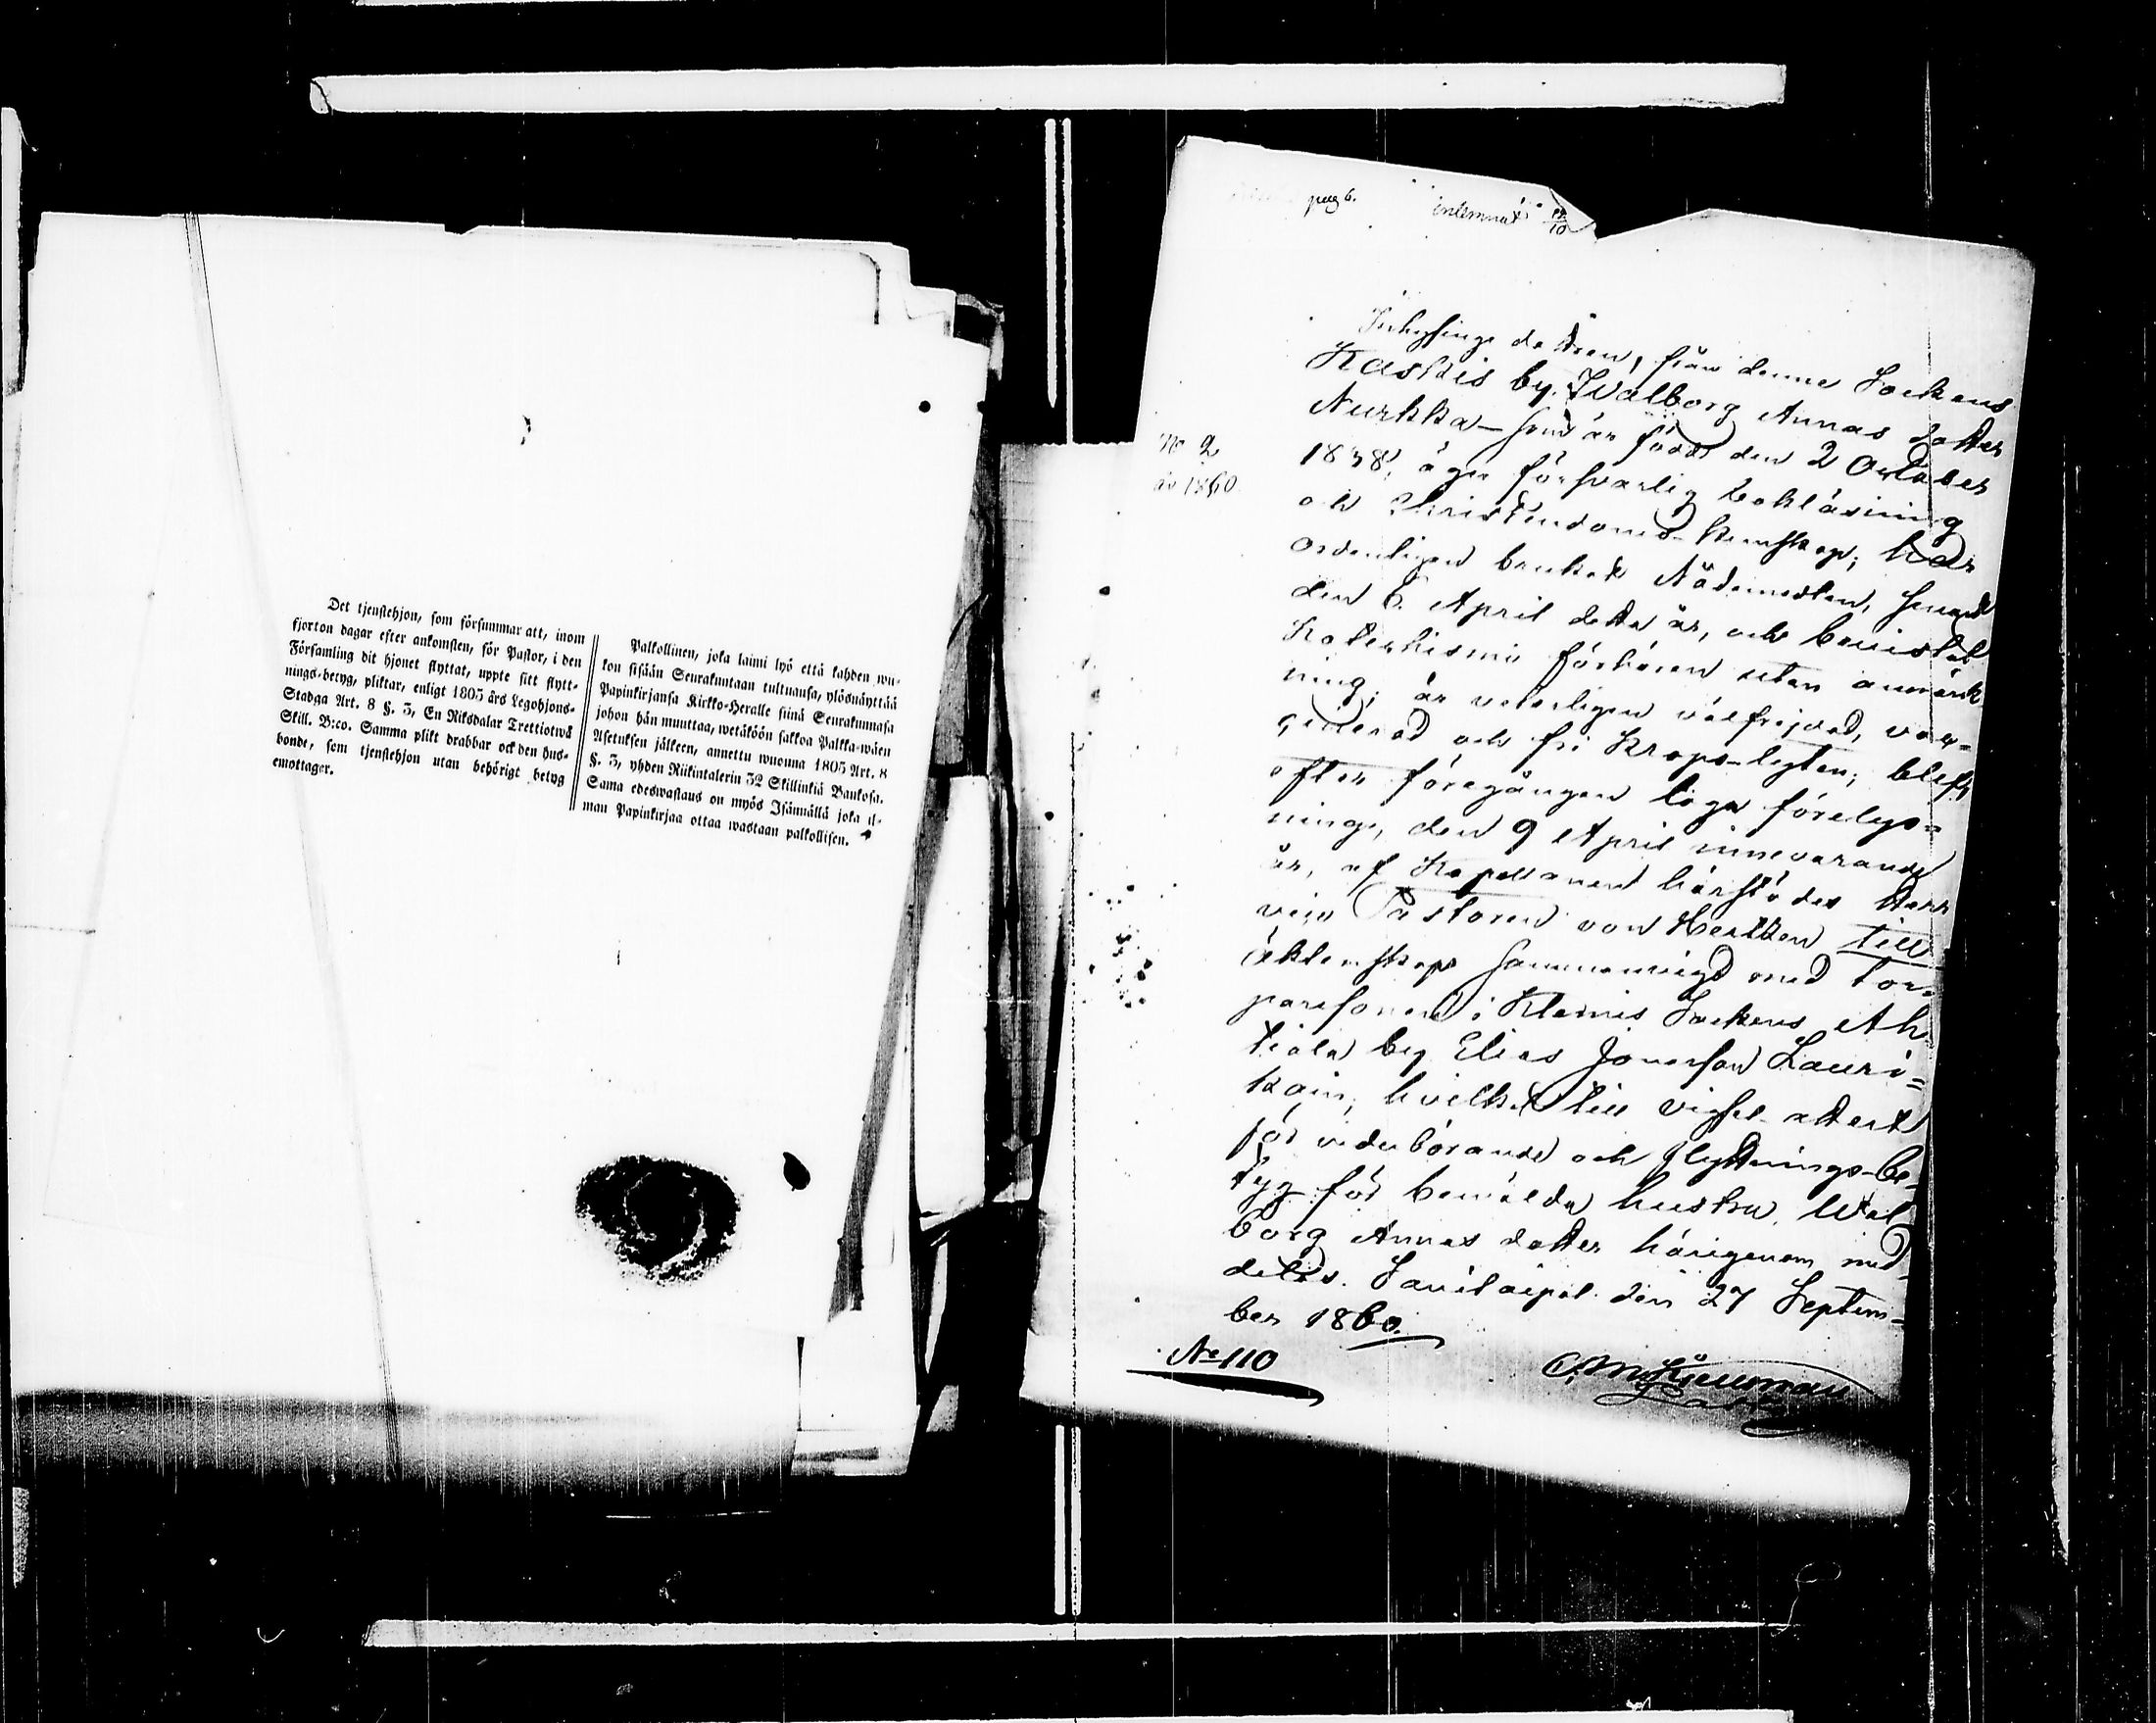 Det tjenstehjon, som försummar att, inom
fjorton dagar efter ankomsten, för Pastor, i den
Församling dit hjonet flyttat, uppte sitt flytt-
nings-betyg, pliktar, enligt 1805 års Legohjons-
Stadga Art. 8 §. 3, En Riksdalar Trettiotwå
Skill. B:co. Samma plikt drabbar ock den hus-
bonde, som tjenstehjon utan behörigt betyg
emottager.
Palkollinen, joka laimi lyö että kahden wii-
kon sisään Seurakuntaan tultuansa, ylösnäyttää
Papinkirjansa Kirkko-Heralle siinä Seurakunnasa
johon hän muuttaa, wetäköön sakkoa Palkka-wäen
Asetuksen jälkeen, annettu wuonna 1805 Art. 8
§. 3, yhden Riikintalerin 32 Skillinkiä Bankosa.
Sama edeswastaus on myös Isännällä joka il-
man Papinkirjaa ottaa wastaan palkollisen.
pag 6. inlemnat 12/10
No 2
år 1860.
Inhysinge dottren, från denne Sockens
Kaskis by, Walborg Annas dotter
Nurkka – som är född den 2 October
1838, äger försvarlig bokläsning
och Christendoms-kunskap; har
ordentligen brukat Nådemedlen, senast
den 6. April detta år, och bevistat
Katechismi förhören utan anmärk
ning; är veterligen välfrejdad, vac-
cinerad och fri Kropps-lyten; blef,
efter föregången laga förelys-
ninge, den 9 April innevarande
år, af Kapellanen härstädes Herr
vice Pastoren von Hertten till
äktenskap sammanvigd med tor-
paresonen i Klemis Sockens Ah
tiala by Elias Jonasson Lauri-
kain, hvilket till vigsel-attest
för vederbörande och flyttnings-be-
tyg för bemälda hustru Wal
borg Annas dotter härigenom med
delas. Savitaipal den 27 Septem-
ber 1860.
No 110